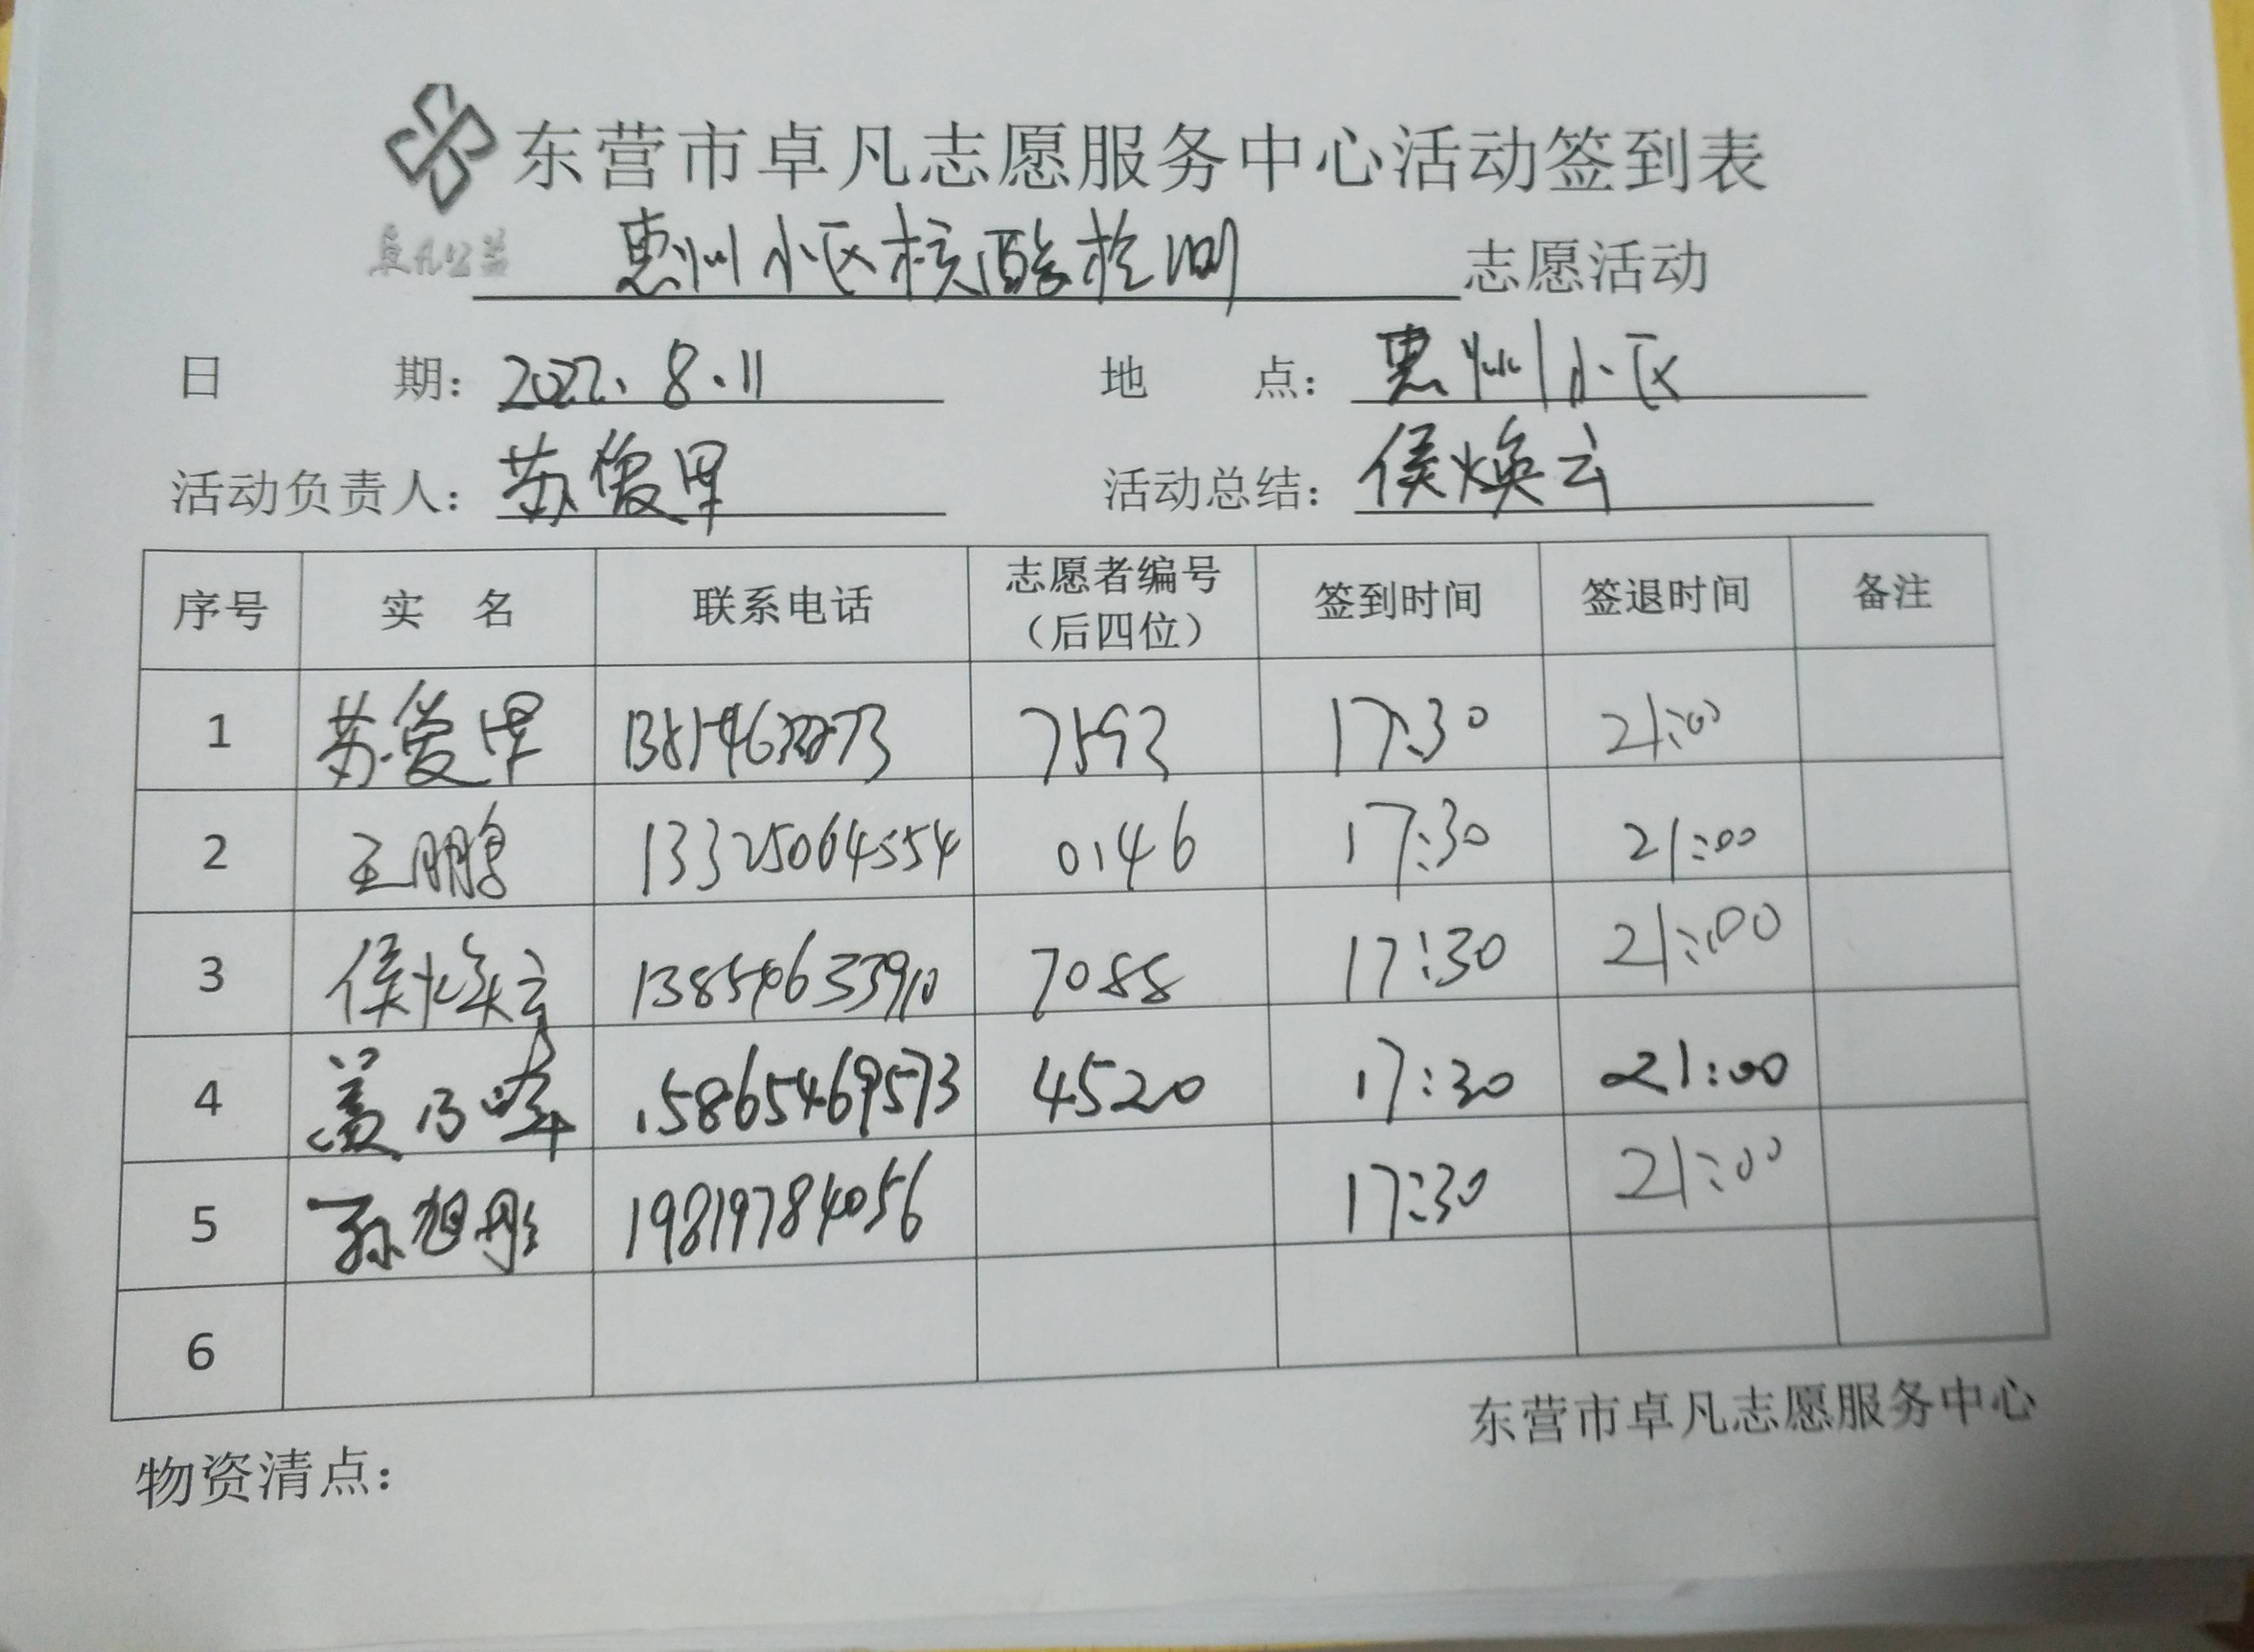 东营市卓凡志愿服务中心活动签到表
卓凡公益
惠州小区核酸检测 志愿活动
日 期: 2022.8.11 地 点: 惠州小区
活动负责人: 苏俊里 活动总结: 侯焕云
序号 实 名 联系电话 志愿者编号（后四位） 签到时间 签退时间 备注
1 苏爱 7593 17:30 21:00
2 王鹏 13325064554 0146 17:30 21:00
3 侯焕云 13854633910 7088 17:30 21:00
4 盖乃峰 15865469573 4520 17:30 21:00
5 孙旭彤 19819784056 17:30 21:00
6
东营市卓凡志愿服务中心
物资清点: